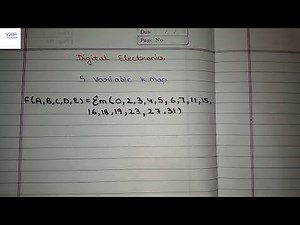 YHP
Date
Page No.
Digital Electronics
5 Variable k map
F(A,B,C,D,E) = Σm(0,2,3,4,5,6,7,11,15,
16,18,19,23,27,31)